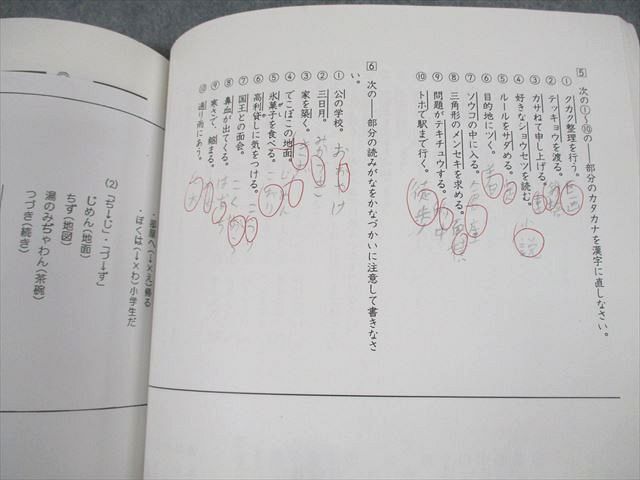 5 次の①〜⑩の——部分のカタカナを漢字に直しなさい。
① クカク整理を行う。
② テッキョウを渡る。
③ カサねて申し上げる。
④ 好きなショウセツを読む。
小説
⑤ ルールをサダめる。
⑥ 目的地にツく。
⑦ ソウコの中に入る。
⑧ 三角形のメンセキを求める。
⑨ 問題がテキチュウする。
⑩ トホで駅まで行く。
徒歩
6 次の——部分の読みがなをかなづかいに注意して書きなさい。
① 公の学校。
② 三日月。
③ 家を築く。
④ でこぼこの地面。
⑤ 氷菓子を食べる。
⑥ 高利貸しに気をつける。
⑦ 国王との面会。
⑧ 鼻血が出てくる。
⑨ 寒さで、縮まる。
⑩ 通り雨にあう。
・部屋へ(↓×え)帰る
・ぼくは(↓×わ)小学生だ
(2)「ぢ→じ」・「づ→ず」
じめん(地面)
ちず(地図)
湯のみぢゃわん(茶碗)
つづき(続き)